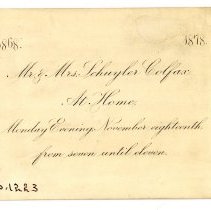 1868. 1878.
Mr. & Mrs. Schuyler Colfax
At Home.
Monday Evening, November eighteenth,
from seven until eleven.
.1223